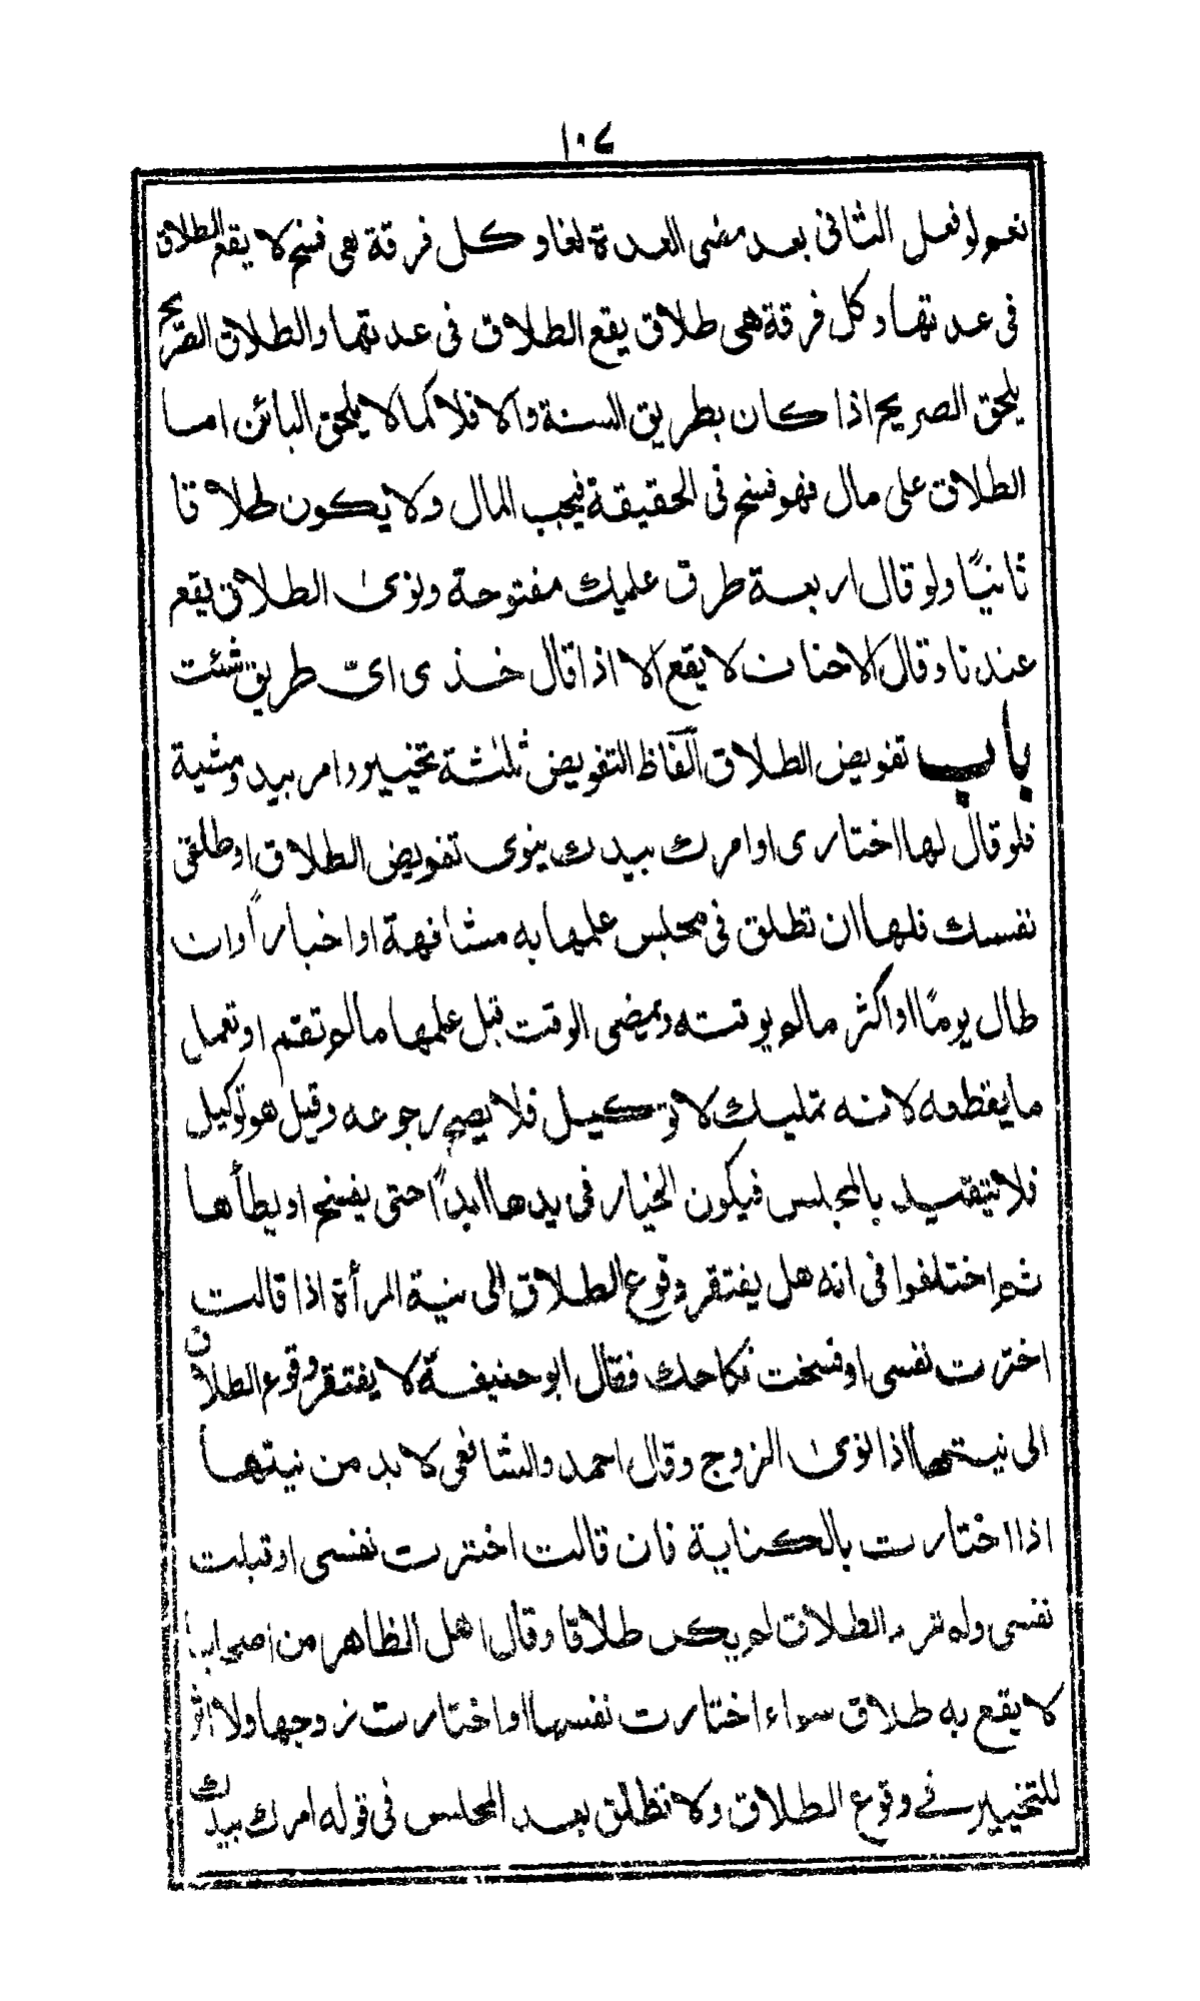 ١٠٧
نعم لو فعل الثانى بعد مضى العدة لغا و كل فرقة هى فسخ لا يقع الطلاق
فى عدتها و كل فرقة هى طلاق يقع الطلاق فى عدتها والطلاق الصريح
يلحق الصريح اذا كان بطريق السنة والا فلا كما لا يلحق البائن اما
الطلاق على مال فهو فسخ فى الحقيقة فيجب المال ولا يكون طلاقا
ثانيًا ولو قال اربعة طرق عليك مفتوحة ونوى الطلاق يقع
عندنا وقال الاحناف لا يقع الا اذا قال خذى اىّ طريق شئت
باب تفويض الطلاق الفاظ التفويض ثلثة تخيير وامر بيد ومشية
فلو قال لها اختارى او امرك بيدك ينوى تفويض الطلاق او طلقى
نفسك فلها ان تطلق فى مجلس علمها به مشافهة او اخبارًا وان
طال يومًا او اكثر مالم يوقته ويمضى الوقت قبل علمها مالم تقم او تعمل
ما يقطعه لانه تمليك لا توكيل فلا يصح رجوعه وقيل هو توكيل
فلا يتقيد بالمجلس فيكون الخيار فى يدها ابدًا حتى يفسخ او يطأها
ثم اختلفوا فى انه هل يفتقر وقوع الطلاق الى نية المرأة اذا قالت
اخترت نفسى او فسخت نكاحك فقال ابو حنيفة لا يفتقر وقوع الطلاق
الى نيتها اذا نوى الزوج وقال احمد والشافعى لا بد من نيتها
اذا اختارت بالكناية فان قالت اخترت نفسى او قبلت
نفسى ولم ترد الطلاق لم يكن طلاقا وقال اهل الظاهر من اصحابنا
لا يقع به طلاق سواء اختارت نفسها او اختارت زوجها ولا اثر
للتخيير فے وقوع الطلاق ولا تطلق بعد المجلس فى قوله امرك بيدك